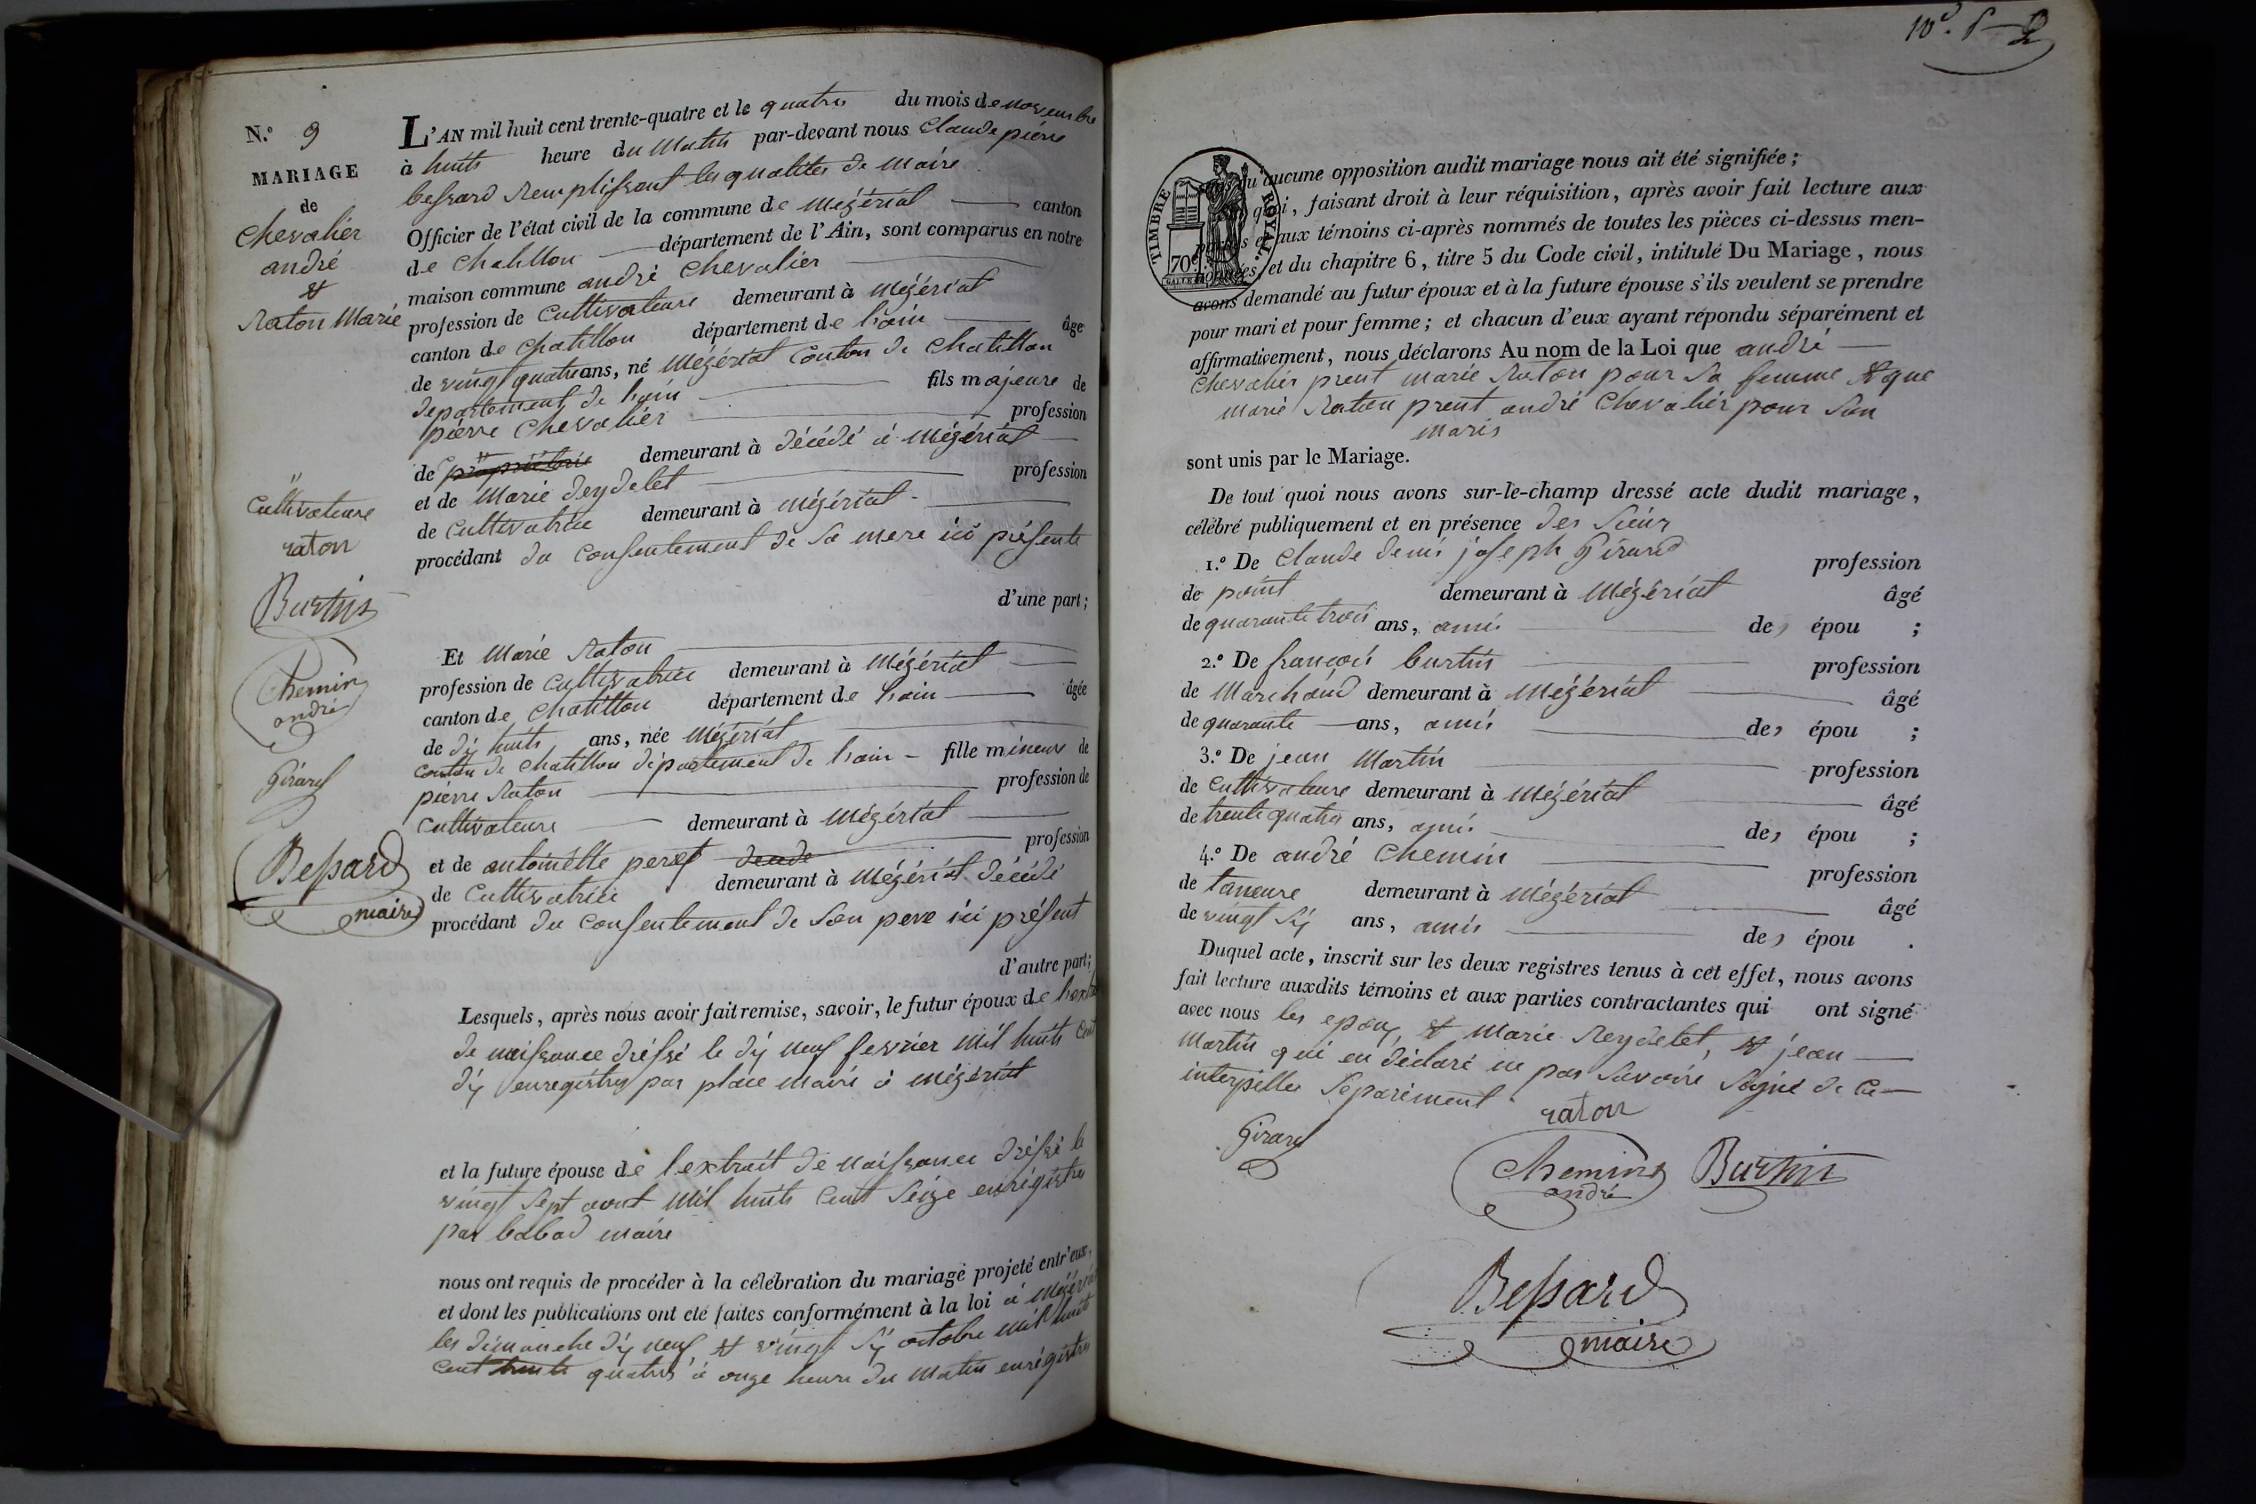 N.° 9
MARIAGE
de
Chevalier
andré
&
Raton Marie
"
Cultivateure
raton
Burtin
Chemin
andré
Girard
Bessard
maire
L'AN mil huit cent trente-quatre et le quatre du mois de novembre
à huits heure du Matin par-devant nous Claude piérre
bessard Remplissant les qualités de maire
Officier de l'état civil de la commune de Mézériat canton
de Chatillon département de l'Ain, sont comparus en notre
maison commune andré Chevalier
profession de Cultivateure demeurant à Mézériat
canton de Chatillon département de hain âge
de vingt quatre ans, né Mézériat Conton de Chatillon
departement de hain fils majeure de
pierre Chevalier profession
de propriétaire demeurant à décédé à Mézériat
et de Marie Deydelet profession
de Cultivatrice demeurant à Mézériat
procédant du Consentement de Sa mere ici présente
d'une part;
Et Marie Raton
profession de Cultivatrice demeurant à Mézériat
canton de Chatillon département de hain âgée
de dix huits ans, née Mézériat
conton de Chatillon département de hain fille mineur de
pierre Raton profession de
Cultivateure demeurant à Mézériat
et de antoinette peret profession
de Cultivatrice demeurant à Mézériat décédé
procédant du Consentement de Son pere ici présent
d'autre part;
Lesquels, après nous avoir fait remise, savoir, le futur époux de
de naissance dréssé le dix neuf fevrier Mil huits Cent
dix enregistrés par place Maire à Mézériat
et la future épouse de l'extrait de Naissance dréssé le
vingt Sept aout Mil huits Cent Seize enrégistrés
par babad maire
nous ont requis de procéder à la célébration du mariage projeté entr'eux,
et dont les publications ont été faites conformément à la loi à Mézériat
les dimanche dix neuf & vingt Six octobre mil huits
Cent trente quatres à onze heure du Matin enrégistrés
TIMBRE ROYAL
70
qu'aucune opposition audit mariage nous ait été signifiée;
quoi, faisant droit à leur réquisition, après avoir fait lecture aux
parties et aux témoins ci-après nommés de toutes les pièces ci-dessus men-
tionnées, et du chapitre 6, titre 5 du Code civil, intitulé Du Mariage, nous
avons demandé au futur époux et à la future épouse s'ils veulent se prendre
pour mari et pour femme; et chacun d'eux ayant répondu séparément et
affirmativement, nous déclarons Au nom de la Loi que andré
Chevalier prent marie Raton pour Sa femme & que
marie Raton prent andré Chevalier pour Son
maris
sont unis par le Mariage.
De tout quoi nous avons sur-le-champ dressé acte dudit mariage,
célébré publiquement et en présence des Sieurs
1.° De Claude denis joseph Girard profession
de point demeurant à Mézériat âgé
de quarante trois ans, amis de, épou ;
2.° De françois burtin profession
de Marchand demeurant à Mézériat âgé
de quarante ans, amis de, épou ;
3.° De jean Martin profession
de Cultivateure demeurant à Mézériat âgé
de trente quatre ans, amis de, épou ;
4.° De andré Chemin profession
de taneure demeurant à Mézériat âgé
de vingt Six ans, amis de, épou .
Duquel acte, inscrit sur les deux registres tenus à cet effet, nous avons
fait lecture auxdits témoins et aux parties contractantes qui ont signé
avec nous les epoux, & Marie Reydelet, & jean
Martin qui en déclaré ne pas Savoire Signé de Ce
interpellés Séparément
raton
Girard
Chemin Burtin
andré
Bessard
maire